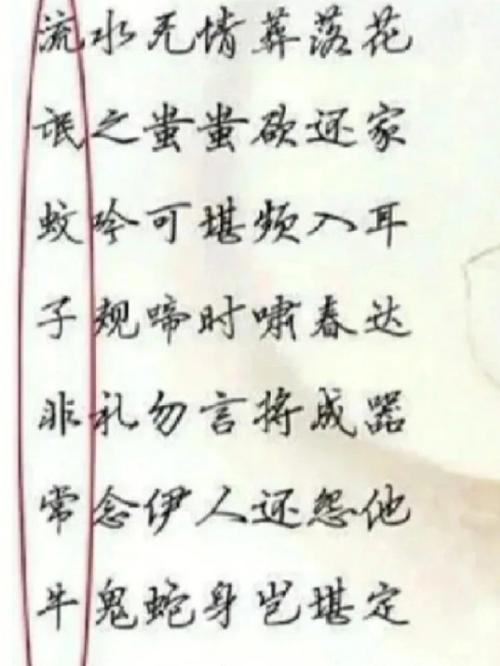 流水无情葬落花
氓之蚩蚩欲还家
蚊吟可堪频入耳
子规啼时啸春达
非礼勿言将成器
常念伊人还怨他
牛鬼蛇身岂堪定